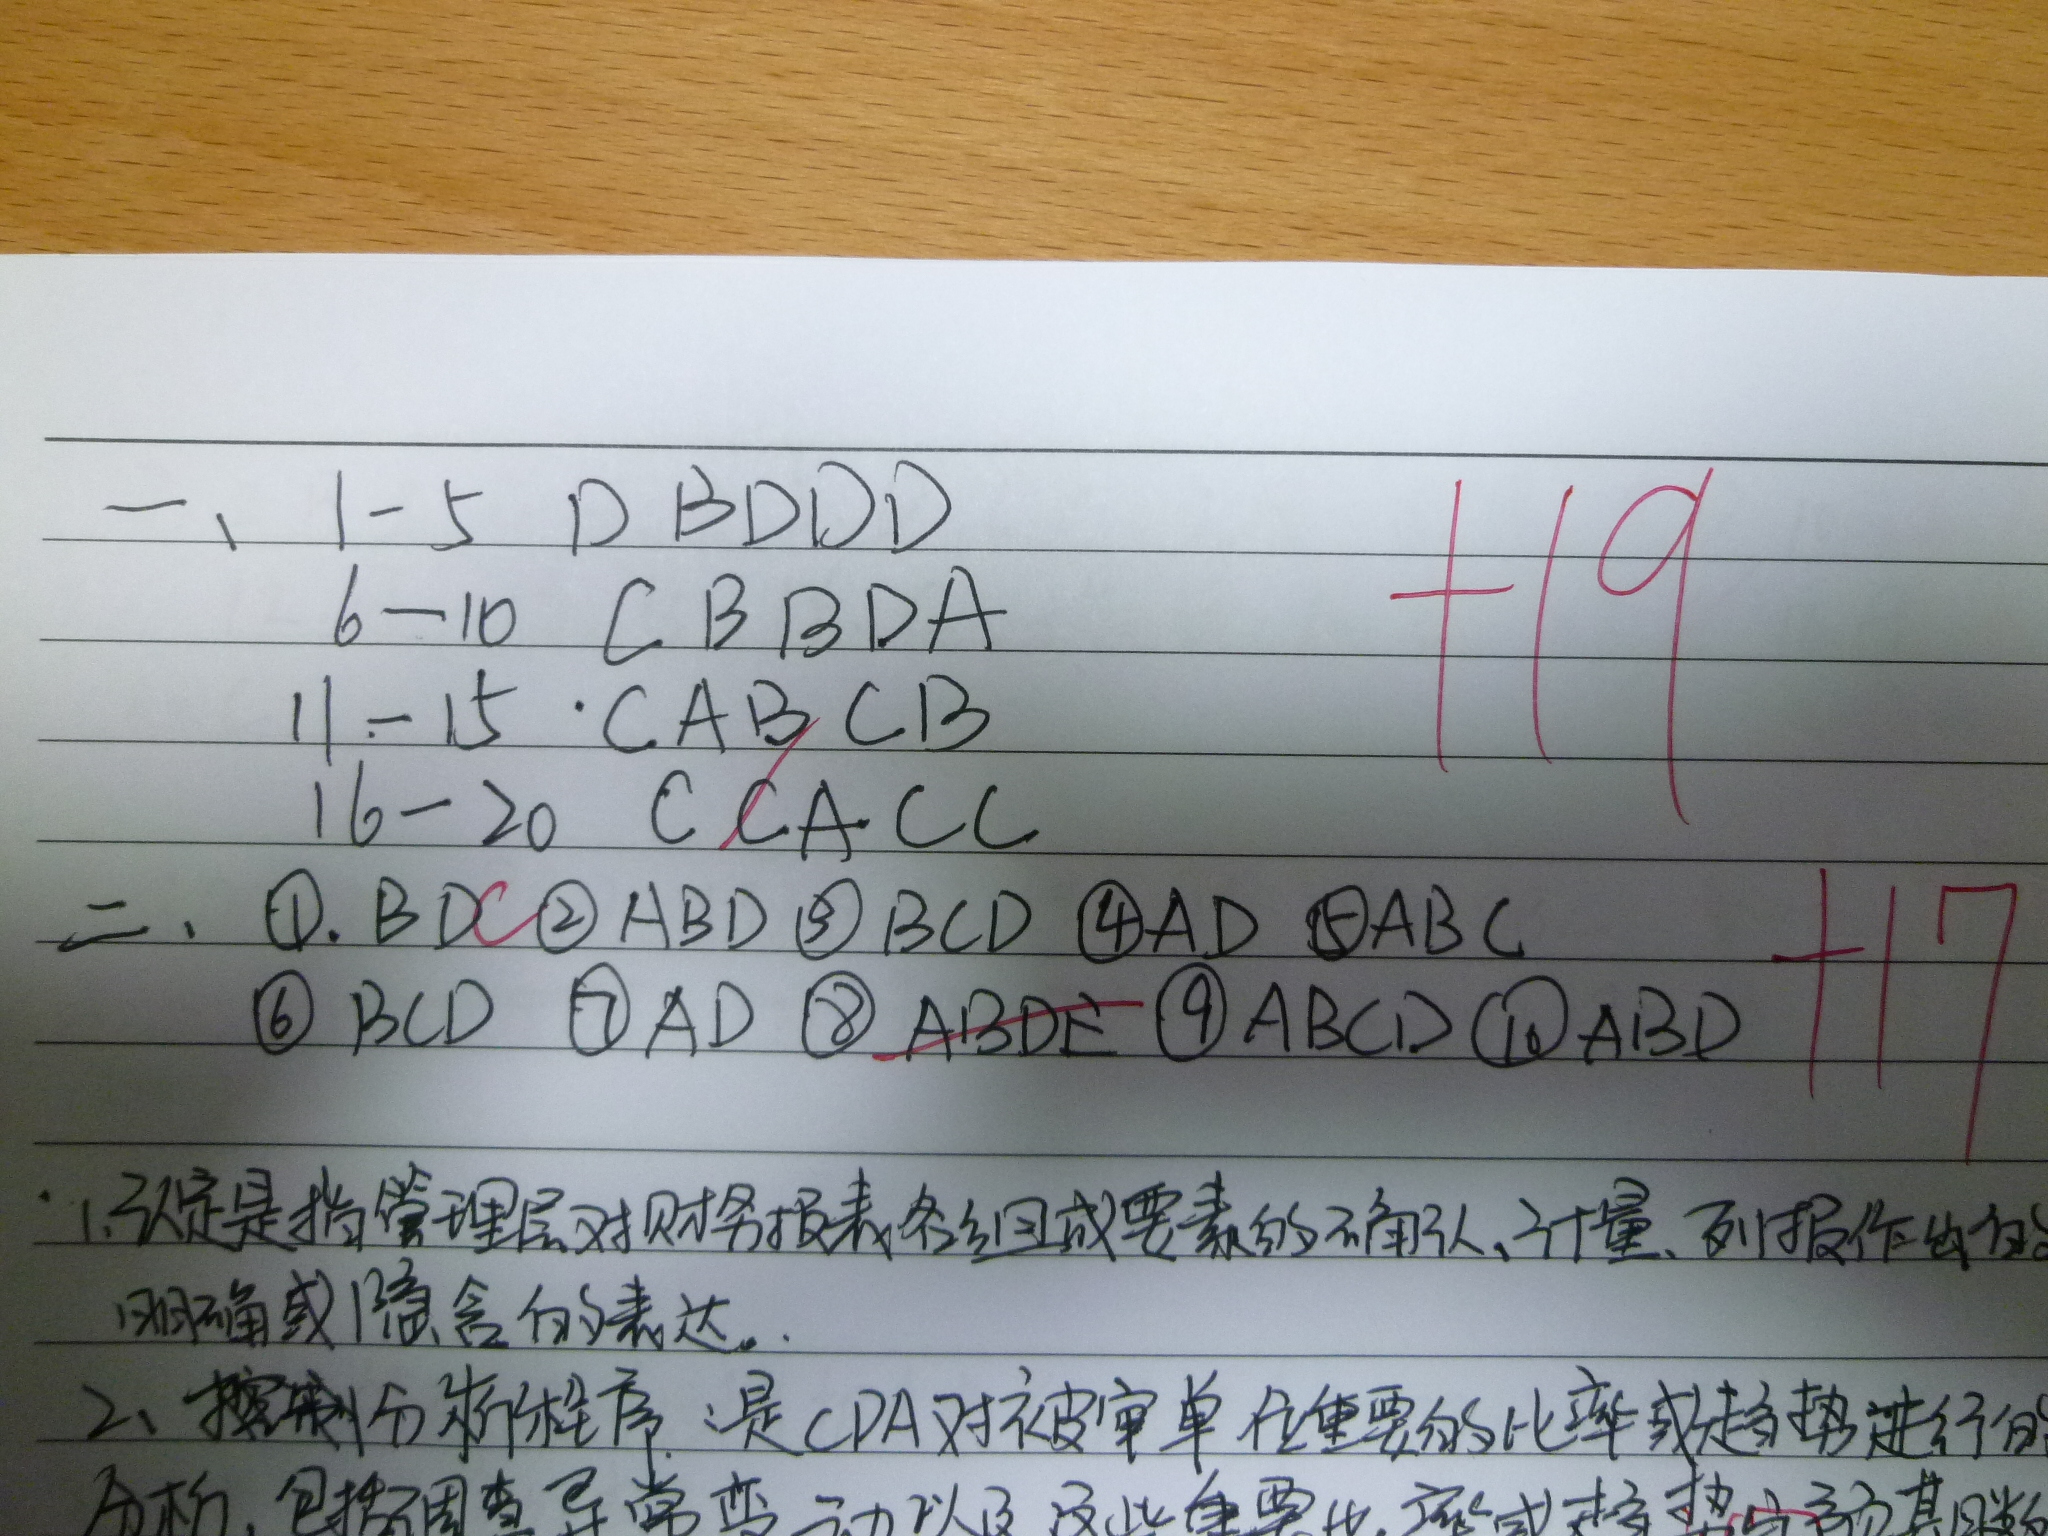 一、 1-5 D BDDD
+19
6-10 CBBDA
11-15 ·CABCB
16-20 CCACC
二、 ①. BDC ② ABD ③ BCD ④ AD ⑤ ABC
+17
⑥ BCD ⑦ AD ⑧ ABDE ⑨ ABCD ⑩ ABD
1.认定是指管理层对财务报表各组成要素的确认、计量、列报作出的
明确或隐含的表达。
2、分析程序:是CPA对被审单位重要的比率或趋势进行的
分析,包括调查异常变动以及这些重要比率或趋势与预其